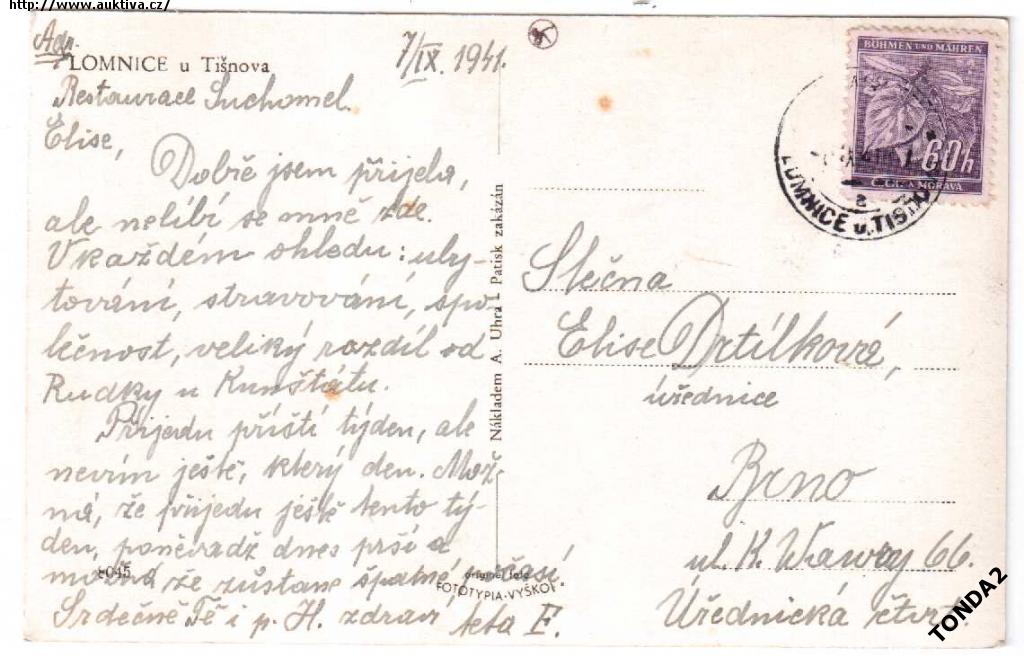 http://www.auktiva.cz/
Adr.
LOMNICE u Tišnova
7/IX. 1941.
Restaurace Suchomel.
Elise,
Dobře jsem přijela,
ale nelíbí se mně zde.
V každém ohledu: uby-
tování, stravování, spo-
lečnost, veliký rozdíl od
Rudky u Kunštátu.
Přijedu příští týden, ale
nevím ještě, který den. Mož-
ná, že přijedu ještě tento tý-
den, poněvadž dnes prší a
že zůstane špatné počasí.
Srdečně Tě i p. H. zdraví
teta F.
8045
original foto
FOTOTYPIA-VYŠKOV
Nákladem A. Uhra Patisk zakázán
BÖHMEN UND MÄHREN
60h
ČECHY A MORAVA
LOMNICE u TIŠNOVA
Slečna
Elise Drtílková,
úřednice
Brno
ul. K. Wawry 66.
Úřednická čtvrť
TONDA2